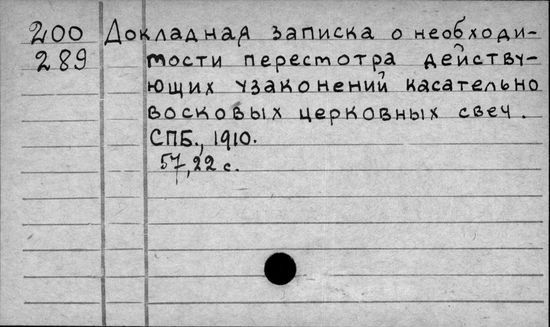 200 Докладная записка о необходи-
289 мости перестотра действу-
ющих узаконений касательно
восковых церковных свеч.
СПБ., 1910.
57, 22 с.